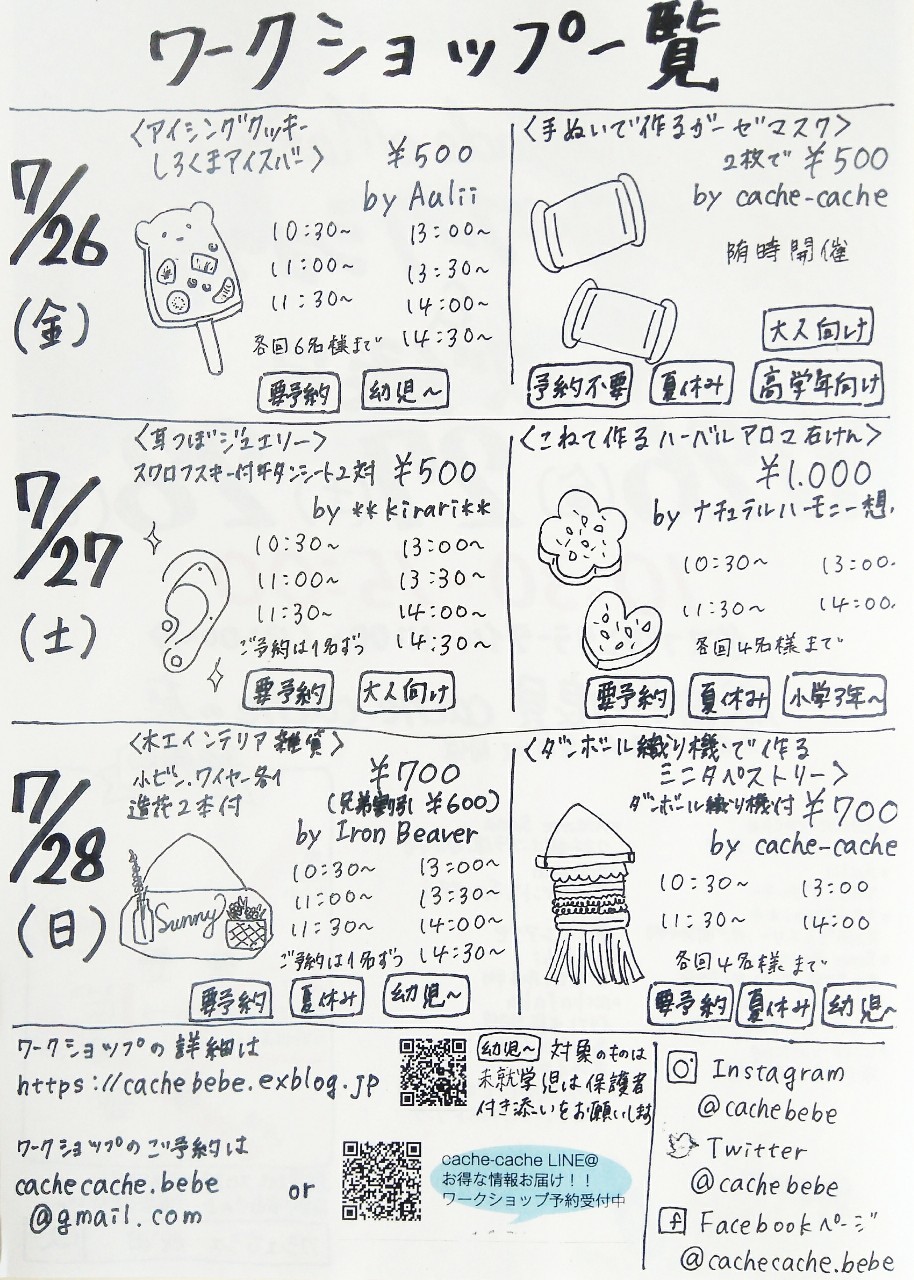 ワークショップ一覧
7/26
(金)
〈アイシングクッキー
しろくまアイスバー〉
¥500
by Aulii
10:30~ 13:00~
11:00~ 13:30~
11:30~ 14:00~
各回6名様まで 14:30~
要予約 幼児~
〈手ぬいで作るガーゼマスク〉
2枚で ¥500
by cache-cache
随時開催
大人向け
予約不要 夏休み 高学年向け
7/27
(土)
〈耳つぼジュエリー〉
スワロフスキー付チタンシート2対 ¥500
by **kirari**
10:30~ 13:00~
11:00~ 13:30~
11:30~ 14:00~
ご予約は1名ずつ 14:30~
要予約 大人向け
〈こねて作るハーバルアロマ石けん〉
¥1.000
by ナチュラルハーモニー想.
10:30~ 13:00.
11:30~ 14:00.
各回4名様まで
要予約 夏休み 小学3年~
7/28
(日)
〈木工インテリア雑貨〉
小ビン.ワイヤー各1
造花2本付
¥700
(兄弟割引 ¥600)
by Iron Beaver
10:30~ 13:00~
11:00~ 13:30~
11:30~ 14:00~
ご予約は1名ずつ 14:30~
Sunny
要予約 夏休み 幼児~
〈ダンボール織り機で作る
ミニタペストリー〉
ダンボール織り機付 ¥700
by cache-cache
10:30~ 13:00
11:30~ 14:00
各回4名様まで
要予約 夏休み 幼児~
ワークショップの詳細は
https://cachebebe.exblog.jp
幼児~ 対象のものは
未就学児は保護者
付き添いをお願いします
ワークショップのご予約は
cachecache.bebe
@gmail.com
or
cache-cache LINE@
お得な情報お届け！！
ワークショップ予約受付中
Instagram
@cachebebe
Twitter
@cachebebe
Facebookページ
@cachecache.bebe